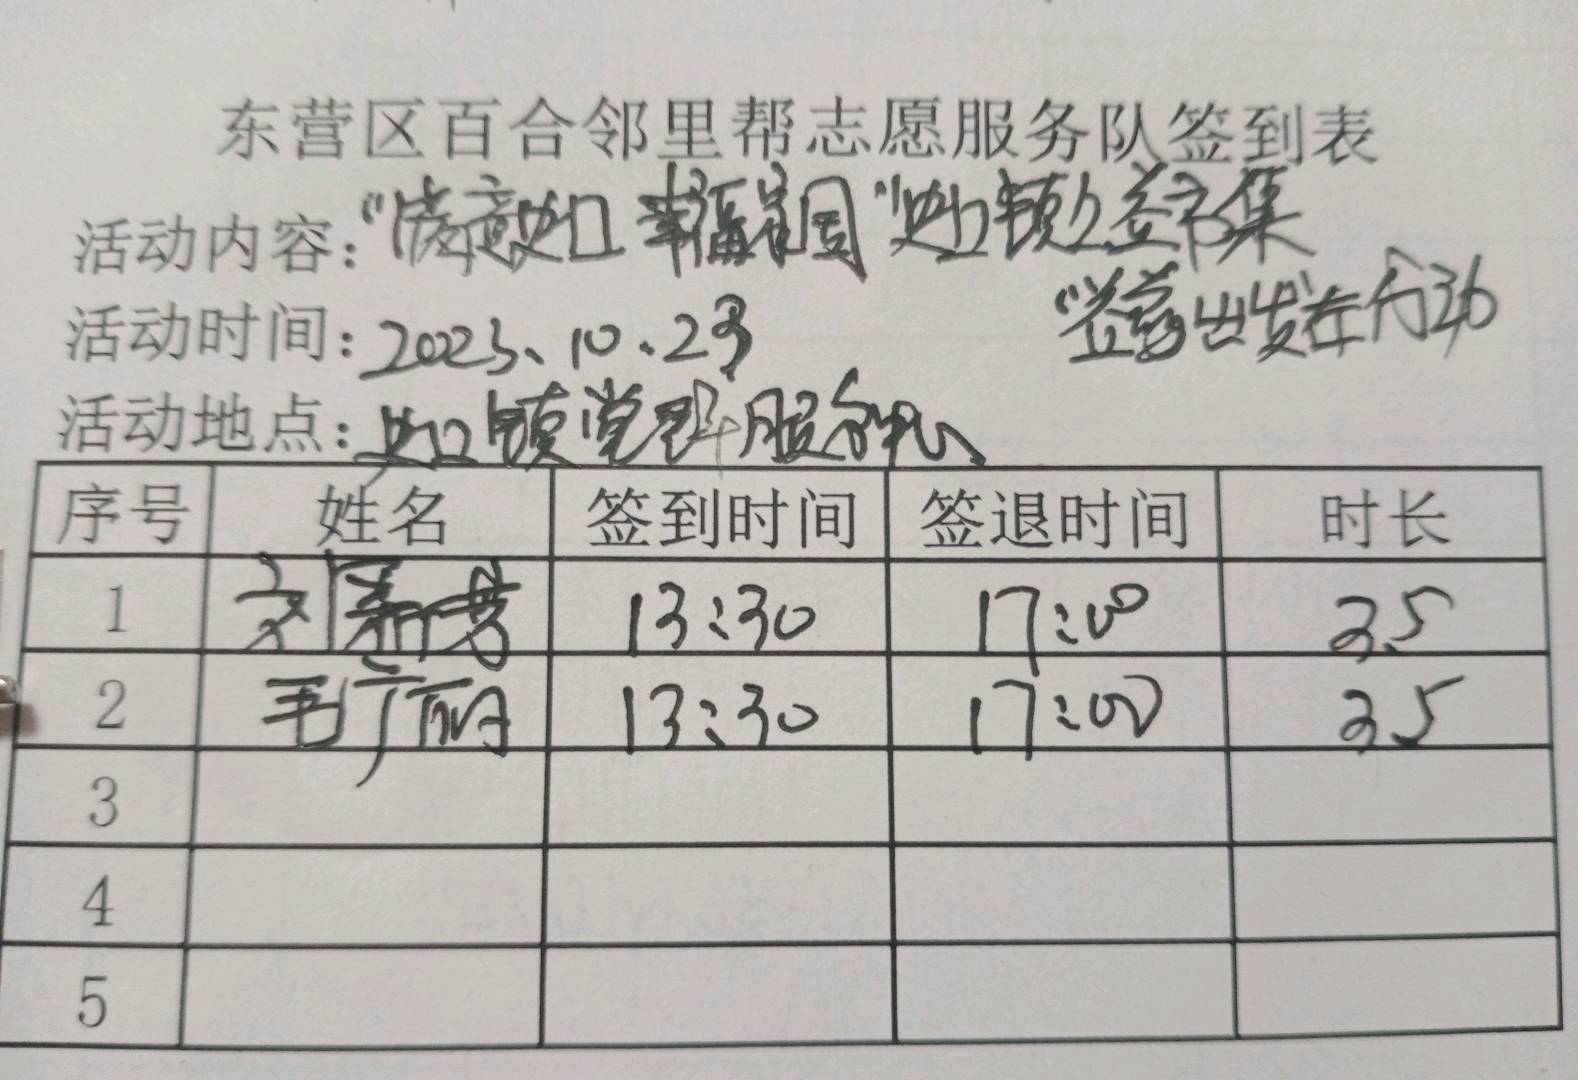 东营区百合邻里帮志愿服务队签到表
活动内容：“情意史口 幸福家园”史口镇公益市集
“益莓出发在行动
活动时间：2023、10、23
活动地点：史口镇党群服务中心
序号 姓名 签到时间 签退时间 时长
1 刘新芳 13:30 17:00 3.5
2 毛广丽 13:30 17:00 3.5
3
4
5